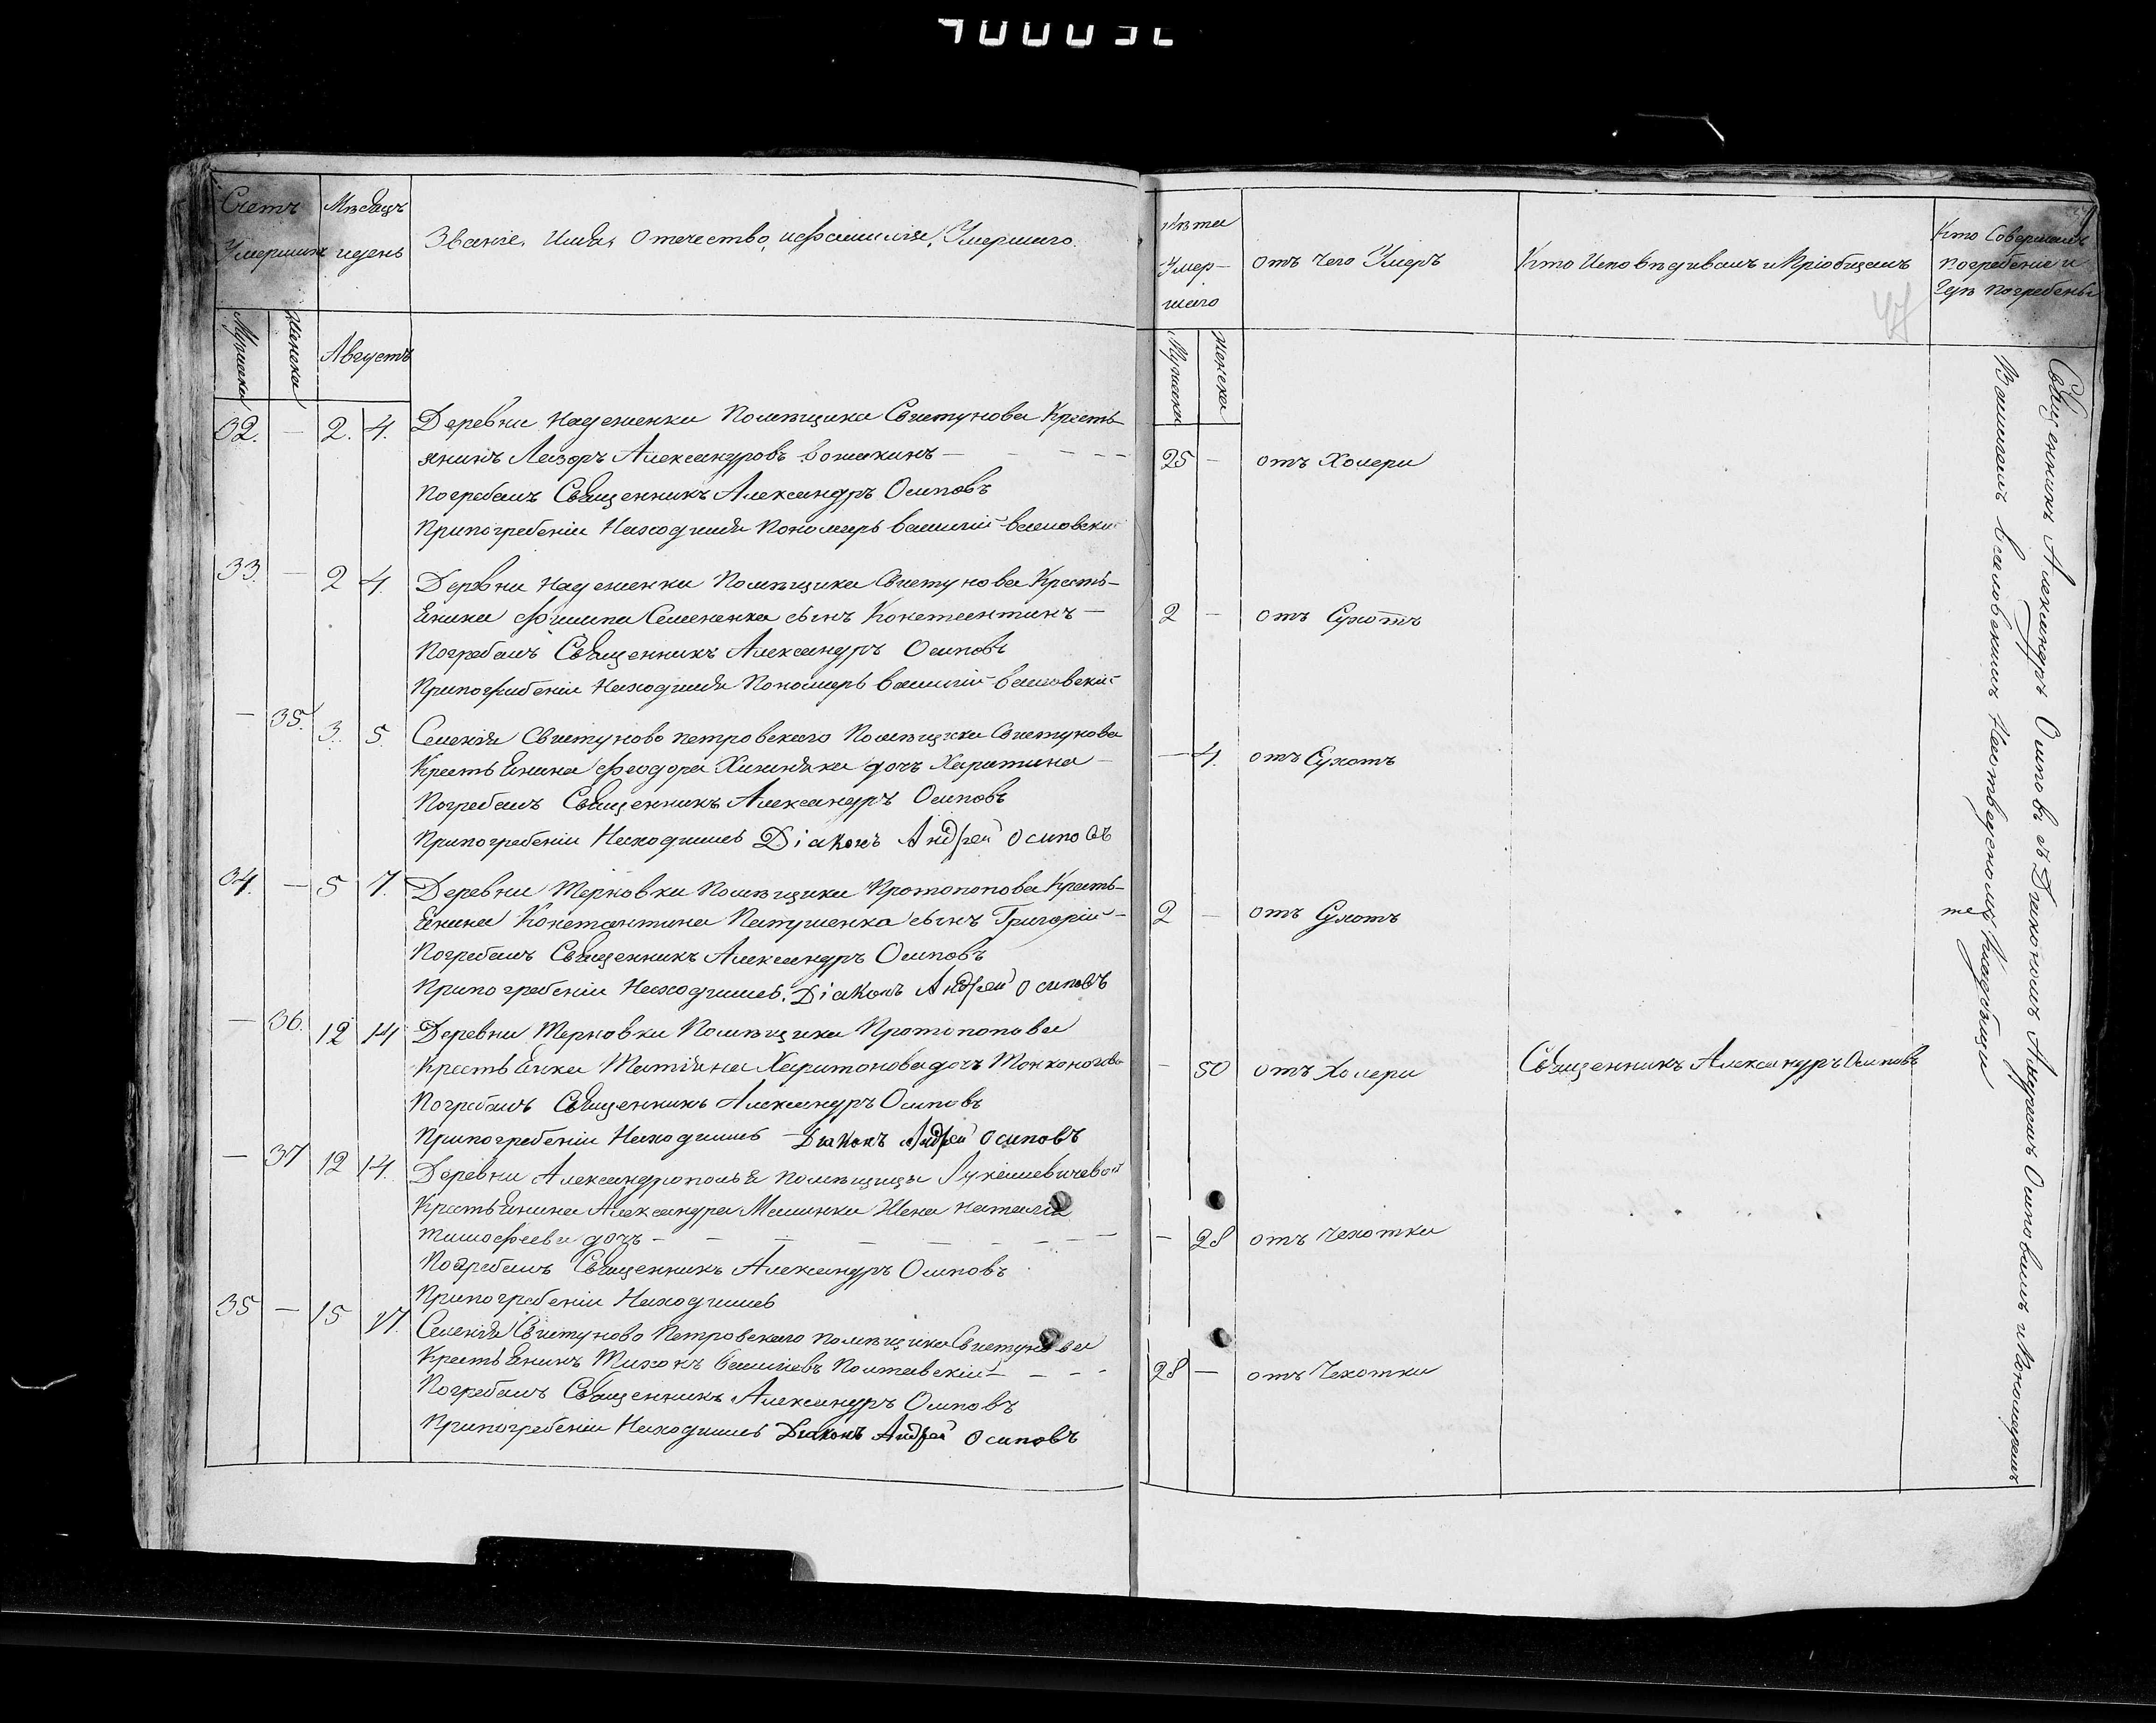 Счетъ Умершихъ
Мѣсяцъ и день
Званіе, Имя, Отечество, и фамилія, Умершаго
Мужеска
Женска
Августъ
32. — 2. 4. Деревни Надеженки Помѣщика Свистунова Кресть-
янинъ Лазоръ Александровъ
Погребалъ Священникъ Александръ Осиповъ
При погребеніи Находился Пономарь василій
33. — 2 4. Деревни Надеженки Помѣщика Свистунова Кресть-
янина Филипа Семененка сынъ Константинъ —
Погребалъ Священникъ Александръ Осиповъ
При погрибеніи Находился Пономарь василій
— 35. 3. 5. Селенія Свистуново петровскаго Помѣщика Свистунова
Крестьянина Феодора дочь Харитина —
Погребалъ Священникъ Александръ Осиповъ
При погребеніи Находишсь Діаконъ Андрей Осиповъ
34. — 5 7. Деревни Терновки Помѣщика Протопопова Кресть-
янина Константина сынъ Григорій —
Погребалъ Священникъ Александръ Осиповъ
При погребеніи Находилсь. Діаконъ Андрей Осиповъ
— 36. 12 14 Деревни Терновки Помѣщика Протопопова
Крестьянка Татіяна Харитонова дочь
Погребалъ Священникъ Александръ Осиповъ
При погребеніи Находилсь Діаконъ Андрей Осиповъ
— 37 12 14. Деревни Александрополья помѣщицы Лукашевичевой
Крестьянина Александра Жена наталія
тимофеева дочь —
Погребалъ Священникъ Александръ Осиповъ
При погребеніи Находилсь
35 — 15 17. Селенія Свистуново Петровскаго помѣщика Свистунова
Крестьянинъ Тихонъ Полтавскій —
Погребалъ Священникъ Александръ Осиповъ
При погребеніи Находилсь Діаконъ Андрей Осиповъ
Лѣта Умер-
шаго
отъ чего Умеръ
Кто Исповѣдивалъ и Пріобщалъ
Кто Совершалъ
погребеніе и
Гдѣ погребены
Мужеска
женска
25 — отъ Холери
2 — отъ Сухотъ
— 4. отъ Сухотъ
2 — отъ Сухотъ
— 50 отъ Холери Священникъ Александръ Осиповъ
— 28 отъ Чехотки
28 — отъ Чехотки
Священникъ Александръ Осиповъ съ Діякономъ Андреемъ Осиповымъ и Пономаремъ
Василіемъ На отведеномъ Кладбищи